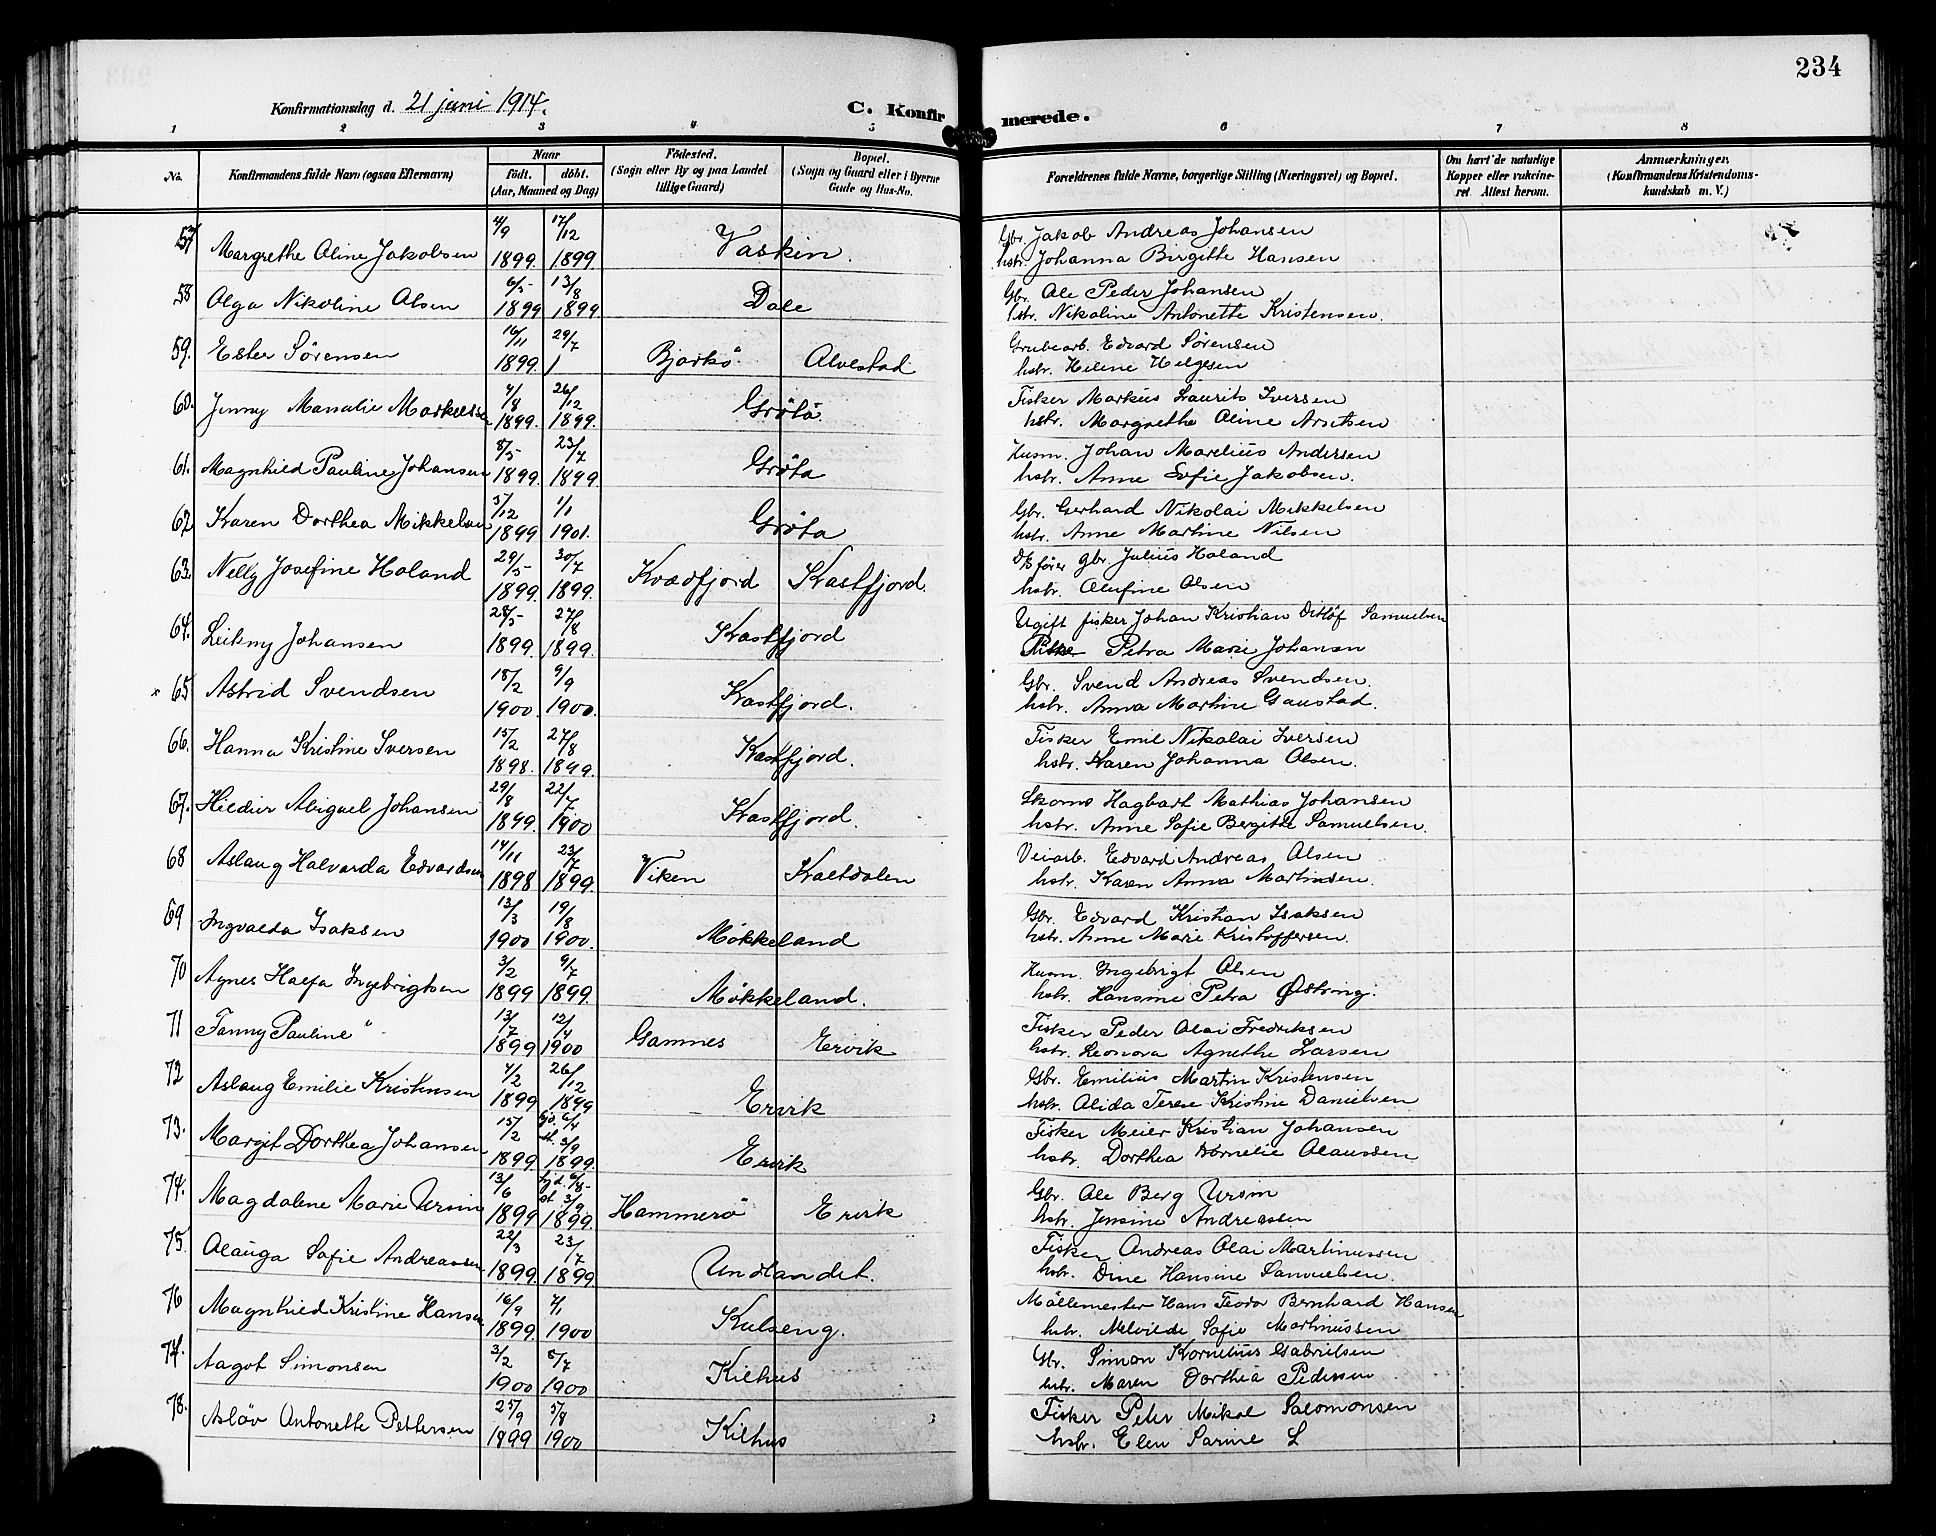 234
Konfirmationsdag d. 21 juni 1914.
C. Konfirmerede.
1 2 3 4 5 6 7 8
No. Konfirmandens fulde Navn (ogsaa Efternavn) Naar Fødested. Bopæl. Forældrenes fulde Navne, borgerlige Stilling (Næringsvei) og Bopæl. Om havt de naturlige Anmærkninger.
født. døbt. (Sogn eller By og paa Landet (Sogn og Gaard eller i Byerne Kopper eller vakcine- (Konfirmandens Kristendoms-
(Aar, Maaned og Dag) tillige Gaard) Gade og Hus-No. ret Attest herom. kundskab m. V.)
57 Margrethe Oline Jakobsen 4/9 1899. 17/12 1899. Vaskin. Gbr. Jakob Andreas Johansen
hstr. Johanna Birgitte Hansen
58 Olga Nikoline Olsen 6/5 1899 13/8 1899 Dale Gbr. Ole Peder Johansen
hstr. Nikoline Antonette Kristensen.
59. Ester Sørensen 16/11 1899. 29/7 Bjarkö. Alvestad Grubearb. Edvard Sørensen
hstr. Heline Helgesen
60. Jenny Manalie Markussen 4/8 1899. 26/12 1899. Gröta. Fisker Markus Laurits Iversen
hstr. Margrethe Oline Arntsen
61. Magnhild Pauline Johansen 8/5 1899. 23/7 1899 Gröta Husm. Johan Marelius Andersen
hstr. Anne Sofie Jakobsen.
62 Karen Dorthea Mikkelsen 3/12 1899 1/1 1901. Gröta Gbr. Gerhard Nikolai Mikkelsen
hstr. Anne Martine Nilsen
63. Nelly Josefine Holand 29/5 1899. 30/7 1899. Kvædfjord Kastfjord. gbr. Julius Holand
hstr. Olufine Olsen
64. Johansen 28/5 1899. 27/8 1899. Kastfjord Ugift fisker Johan Kristian Ditlöf Samuelsen
Petra Marie Johansen
x 65 Astrid Svendsen 18/2 1900. 9/9 1900. Kastfjord. Gbr. Svend Andreas Svendsen.
hstr. Anna Martine Gaustad.
66. Hanna Kristine Iversen 15/2 1898. 27/8 1899. Kastfjord. Fisker Emil Nikolai Iversen
hstr. Karen Johanna Olsen.
67. Hildur Abigael Johansen 29/8 1899. 22/7 1900 Kastfjord. Skom. Hagbart Mathias Johansen
hstr. Anne Sofie Bergitte Samuelsen.
68 Aslaug Halvarda Edvardsen 14/11 1898 23/7 1899. Viken Kaltdalen Veiarb. Edvard Andreas Olsen
hstr. Karen Anna Martinsen.
69 Ingvalda Isaksen 13/3 1900 19/8 1900. Møkkeland Gbr. Edvard Kristian Isaksen
hstr. Anne Marie Kristoffersen.
70 Agnes Ingebrigtsen 3/2 1899 9/7 1899. Møkkeland. Husm. Ingebrigt Olsen
hstr. Hansine Petra
71 Fanny Pauline " 13/7 1899 12/4 1900 Gamnes Ervik Fisker Peder Olai Fredriksen
hstr. Leonora Agnethe Larsen
72 Aslaug Emilie Kristensen 4/2 1899 26/12 1899 Ervik Gbr. Emilius Martin Kristensen
hstr. Olida Terese Kristine Danielsen
73. Margit Dorthea Johansen 15/2 1899. hjd. 6/4 st. 3/9 1899. Ervik Fisker Meier Kristian Johansen
hstr. Dorthea Kornelie Olaussen
74. Magdalene Marie Ursin 13/6 1899 hjd. 6/8 st. 3/9 1899. Hammerö Ervik Gbr. Ole Berg Ursin
hstr. Jensine Andreassen
75. Olauga Sofie Andreassen 22/3 1899. 23/7 1899. Undlandet. Fisker Andreas Olai Martinussen
hstr. Dine Hansine Samuelsen.
76 Magnhild Kristine Hansen 16/9 1899. 7/1 1900 Kulseng. Møllemester Hans Teodor Bernhard Hansen
hstr. Melvilde Sofie Martinussen
77. Aagot Simonsen 3/2 1900 8/7 1900 Kilhus Gbr. Simon Kornelius Gabrielsen
hstr. Maren Dorthea Pedersen
78. Asløv Antonette Pettersen 25/9 1899 5/8 1900 Kilhus Fisker Peter Mikal Salomonsen
hstr. Elen Sarine L